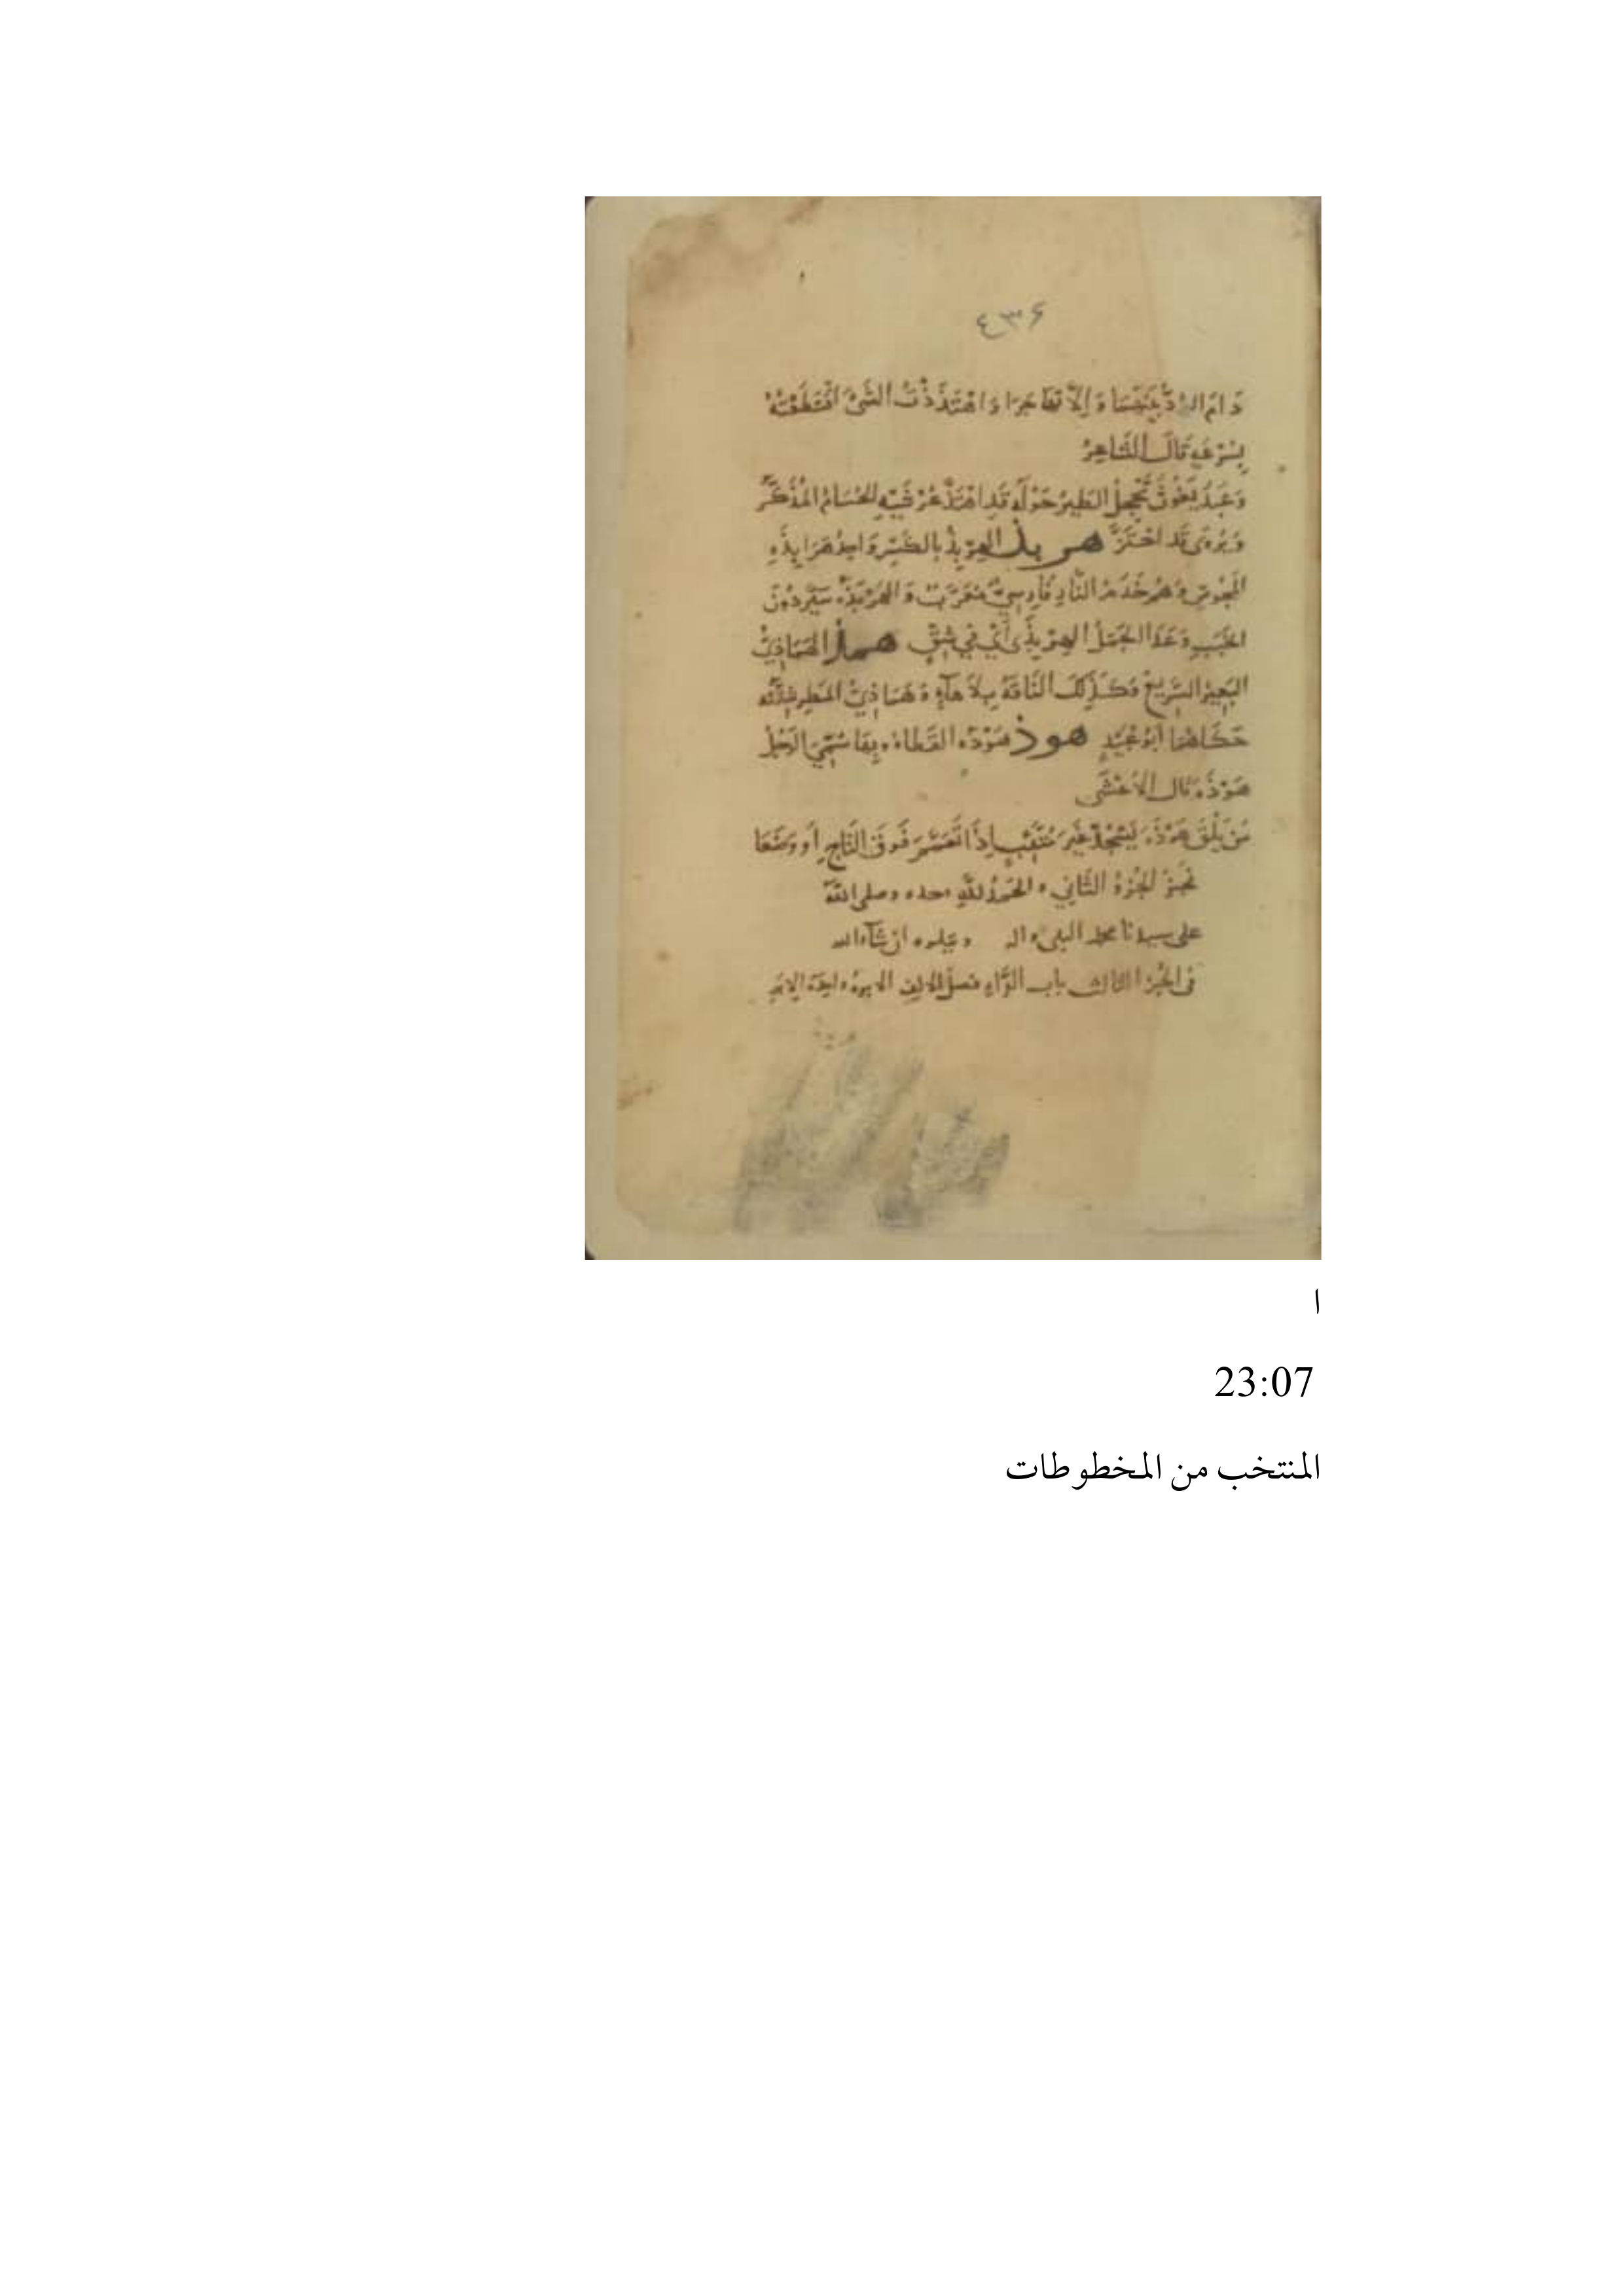 ٤٣٦
بِسُرْعَةٍ قَالَ الشَّاعِرُ
وَعَبْدُ يَغُوثَ تَحْجِلُ الطَّيْرُ حَوْلَهُ قَدِ اهْتَذَّ عُرْشَيْهِ الْحُسَامُ الْمُذَكَّرُ
وَيُرْوَى قَد احْتَزَّ هربذ الهِرْبِذُ بِالكَسْرِ وَاحِدُ هَرَابِذَةِ
المَجُوسِ وَهُمْ خَدَمُ النَّارِ فَارِسِيٌّ مُعَرَّبٌ وَالهَرْبَذَةُ سَيْرٌ دُونَ
الخَبَبِ وَعَدَا الجَمَلُ الهِرْبِذَى أَيْ فِي شِقٍّ همذ الهَمَاذِيُّ
البَعِيرُ السَّرِيعُ وَكَذَلِكَ النَّاقَةُ بِلاَ هَآءٍ وَهَمَاذِيُّ المَطَرِ شِدَّتُه
حَكَاهُمَا أَبُو عُبَيْدٍ هوذ هَوْذَة القَطَاةُ وبِهَا سُمِّيَ الرَّجُلُ
هَوْذَةَ قَالَ الأَعْشَى
مَنْ يَلْقَ هَوْذَةَ يَسْجُدْ غَيْرَ مُتَّئِبٍ إِذَا تَعَمَّمَ فَوقَ التَّاجِ أَو وَضَعَا
نَجَزَ الجُزْءُ الثَّانِي والحَمْدُ للَّهِ وحده وصلى اللَّه
على سيدنا محمد النبي واله ويتلوه ان شآء الله
في الجُزءِ الثالث باب الرَّاءِ فصل الالف
ا
23:07
المنتخب من المخطوطات